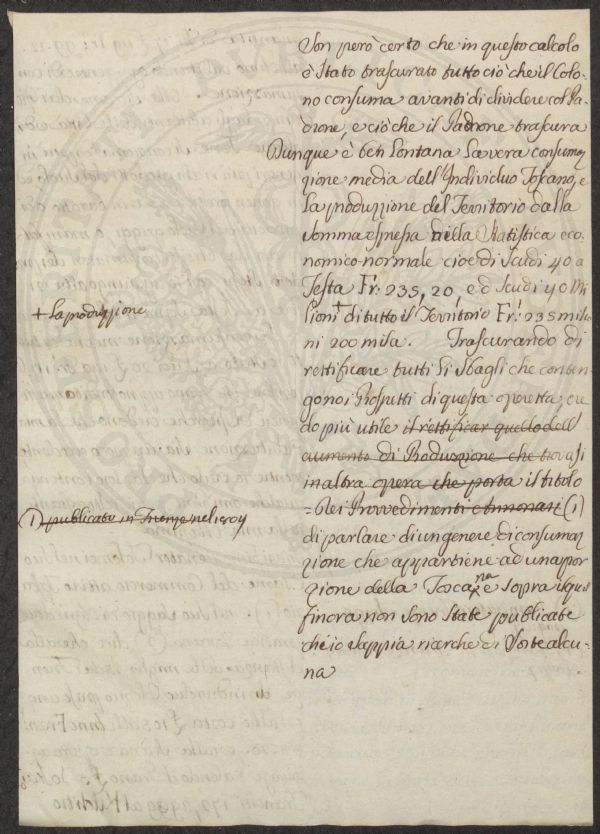 Son però certo che in questo calcolo
è Stato trascurato tutto ciò che il Colo-
no consuma avanti di dividere col Pa-
drone, e ciò che il Padrone trascura
Dunque è ben Lontana La vera consuma
zione media dell'Individuo Toscano, e
La produzzione del Territorio dalla
Somma espressa nella Statistica eco-
nomico-normale cioè di Scudi 40 a
Testa Fr. 235, 20 e di Scudi 40 Mi
+ La produzzione
lioni + di tutto il Territorio Fr. 235 milio
ni 200 mila. Trascurando di
rettificare tutti Li Sbagli che conten-
gono i Prospetti di questa operetta, cre
do più utile il rettificar quello dell'
aumento di Produzzione che trovasi
in altra opera che porta il titolo
= Dei Provvedimenti Annonari (1)
(1) publicato in Firenze nel 1804
di parlare di un genere di consumaz
zione che appartiene ad una por
zione della Toscana e sopra il qual
finora non Sono State publicate
ch'io Sappia ricerche di Sorte alcu-
na